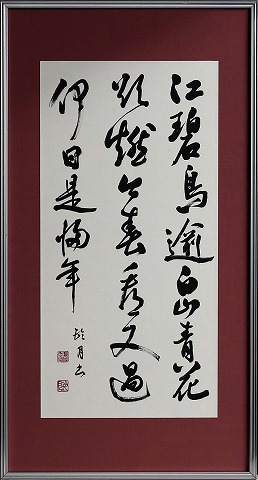 江碧鳥逾白山青花
欲燃今春看又過
何日是歸年
月書